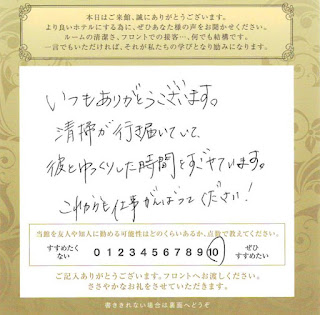 本日はご来館、誠にありがとうございます。
より良いホテルにする為に、ぜひあなた様の声をお聞かせください。
ルームの清潔さ、フロントでの接客…、何でも結構です。
一言でもいただければ、それが私たちの学びとなり励みになります。
いつもありがとうございます。
清掃が行き届いていて、
彼とゆっくりした時間をすごせています。
これからも仕事がんばってください!
当館を友人や知人に勧める可能性はどのくらいあるか、点数で教えてください。
すすめたく
ない
0 1 2 3 4 5 6 7 8 9 10
ぜひ
すすめたい
ご記入ありがとうございます。フロントへお渡しください。
ささやかなお礼をさせていただきます。
書ききれない場合は裏面へどうぞ